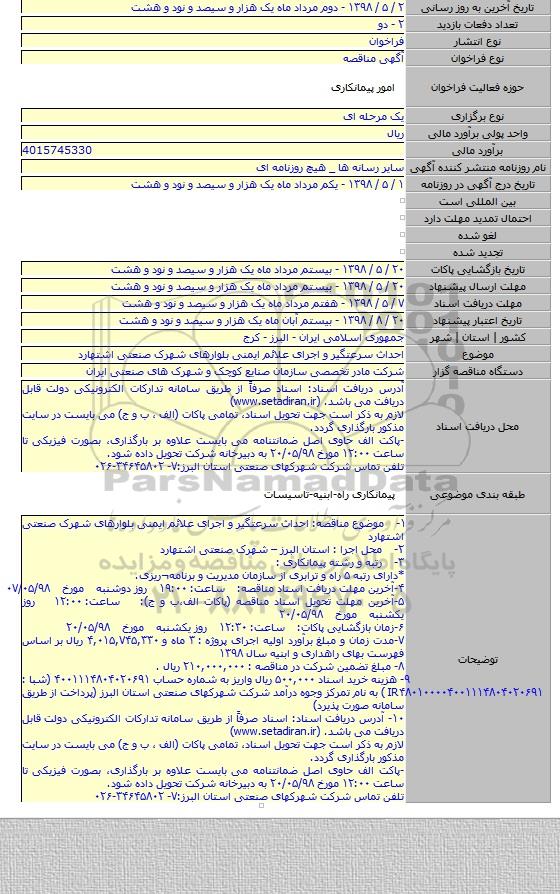 تاریخ آخرین به روز رسانی
۲ / ۵ / ۱۳۹۸ - دوم مرداد ماه یک هزار و سیصد و نود و هشت
تعداد دفعات بازدید
۲ - دو
نوع انتشار
فراخوان
نوع فراخوان
آگهی مناقصه
حوزه فعالیت فراخوان
امور پیمانکاری
نوع برگزاری
یک مرحله ای
واحد پولی برآورد مالی
ریال
برآورد مالی
4015745330
نام روزنامه منتشر کننده آگهی
سایر رسانه ها _ هیچ روزنامه ای
تاریخ درج آگهی در روزنامه
۱ / ۵ / ۱۳۹۸ - یکم مرداد ماه یک هزار و سیصد و نود و هشت
بین المللی است
احتمال تمدید مهلت دارد
لغو شده
تجدید شده
تاریخ بازگشایی پاکات
۲۰ / ۵ / ۱۳۹۸ - بیستم مرداد ماه یک هزار و سیصد و نود و هشت
مهلت ارسال پیشنهاد
۲۰ / ۵ / ۱۳۹۸ - بیستم مرداد ماه یک هزار و سیصد و نود و هشت
مهلت دریافت اسناد
۷ / ۵ / ۱۳۹۸ - هفتم مرداد ماه یک هزار و سیصد و نود و هشت
تاریخ اعتبار پیشنهاد
۲۰ / ۸ / ۱۳۹۸ - بیستم آبان ماه یک هزار و سیصد و نود و هشت
کشور | استان | شهر
جمهوری اسلامی ایران - البرز - کرج
موضوع
احداث سرعتگیر و اجرای علائم ایمنی بلوارهای شهرک صنعتی اشتهارد
دستگاه مناقصه گزار
شرکت مادر تخصصی سازمان صنایع کوچک و شهرک های صنعتی ایران
محل دریافت اسناد
آدرس دریافت اسناد: اسناد صرفاً از طریق سامانه تدارکات الکترونیکی دولت قابل
دریافت می باشد. (www.setadiran.ir)
لازم به ذکر است جهت تحویل اسناد، تمامی پاکات (الف ، ب و ج) می بایست در سایت
مذکور بارگذاری گردد.
-پاکت الف حاوی اصل ضمانتنامه می بایست علاوه بر بارگذاری، بصورت فیزیکی تا
ساعت ۱۲:۰۰ مورخ ۲۰/۰۵/۹۸ به دبیرخانه شرکت تحویل داده شود.
تلفن تماس شرکت شهرکهای صنعتی استان البرز:۷- ۳۴۶۴۵۸۰۲-۰۲۶
ParsNamadData
طبقه بندی موضوعی
پیمانکاری راه-ابنیه-تاسیسات
توضیحات
۱- موضوع مناقصه: احداث سرعتگیر و اجرای علائم ایمنی بلوارهای شهرک صنعتی
اشتهارد
۲- محل اجرا : استان البرز – شهرک صنعتی اشتهارد
۳- رتبه و رشته پیمانکاری :
*دارای رتبه ۵ راه و ترابری از سازمان مدیریت و برنامه¬ریزی.
۴-آخرین مهلت دریافت اسناد مناقصه: ساعت: ۱۹:۰۰ روز دوشنبه مورخ ۰۷/۰۵/۹۸
۵-آخرین مهلت تحویل اسناد مناقصه (پاکات الف،ب و ج): ساعت: ۱۲:۰۰ روز
یکشنبه مورخ ۲۰/۰۵/۹۸
۶-زمان بازگشایی پاکات: ساعت: ۱۲:۳۰ روز یکشنبه مورخ ۲۰/۰۵/۹۸
۷-مدت زمان و مبلغ برآورد اولیه اجرای پروژه : ۳ ماه و ۴,۰۱۵,۷۴۵,۳۳۰ ریال بر اساس
فهرست بهای راهداری و ابنیه سال ۱۳۹۸
۸- مبلغ تضمین شرکت در مناقصه : ۲۱۰,۰۰۰,۰۰۰ ریال .
۹- هزینه خرید اسناد ۵۰۰,۰۰۰ ریال واریز به شماره حساب ۴۰۰۱۱۱۴۸۰۴۰۲۰۶۹۱ (شبا :
IR۴۸۰۱۰۰۰۰۴۰۰۱۱۱۴۸۰۴۰۲۰۶۹۱ ) به نام تمرکز وجوه درآمد شرکت شهرکهای صنعتی استان البرز (پرداخت از طریق
سامانه صورت پذیرد)
۱۰- آدرس دریافت اسناد: اسناد صرفاً از طریق سامانه تدارکات الکترونیکی دولت قابل
دریافت می باشد. (www.setadiran.ir)
لازم به ذکر است جهت تحویل اسناد، تمامی پاکات (الف ، ب و ج) می بایست در سایت
مذکور بارگذاری گردد.
-پاکت الف حاوی اصل ضمانتنامه می بایست علاوه بر بارگذاری، بصورت فیزیکی تا
ساعت ۱۲:۰۰ مورخ ۲۰/۰۵/۹۸ به دبیرخانه شرکت تحویل داده شود.
تلفن تماس شرکت شهرکهای صنعتی استان البرز:۷- ۳۴۶۴۵۸۰۲-۰۲۶